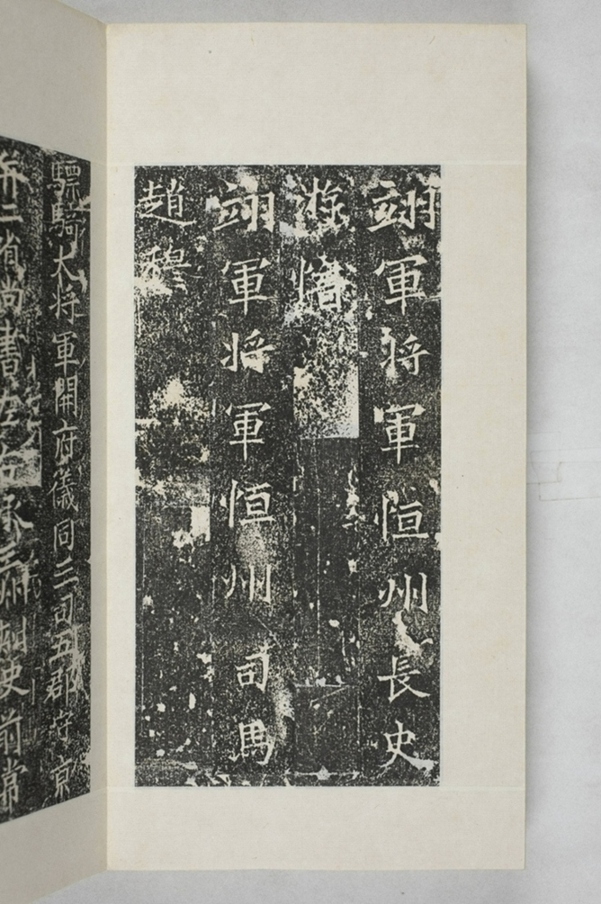 翊軍将軍恒州長史
游愔
翊軍将軍恒州司馬
趙穆
驃騎大将軍開府儀同三司五郡守京
并二省尚書左右丞三州刺史前常